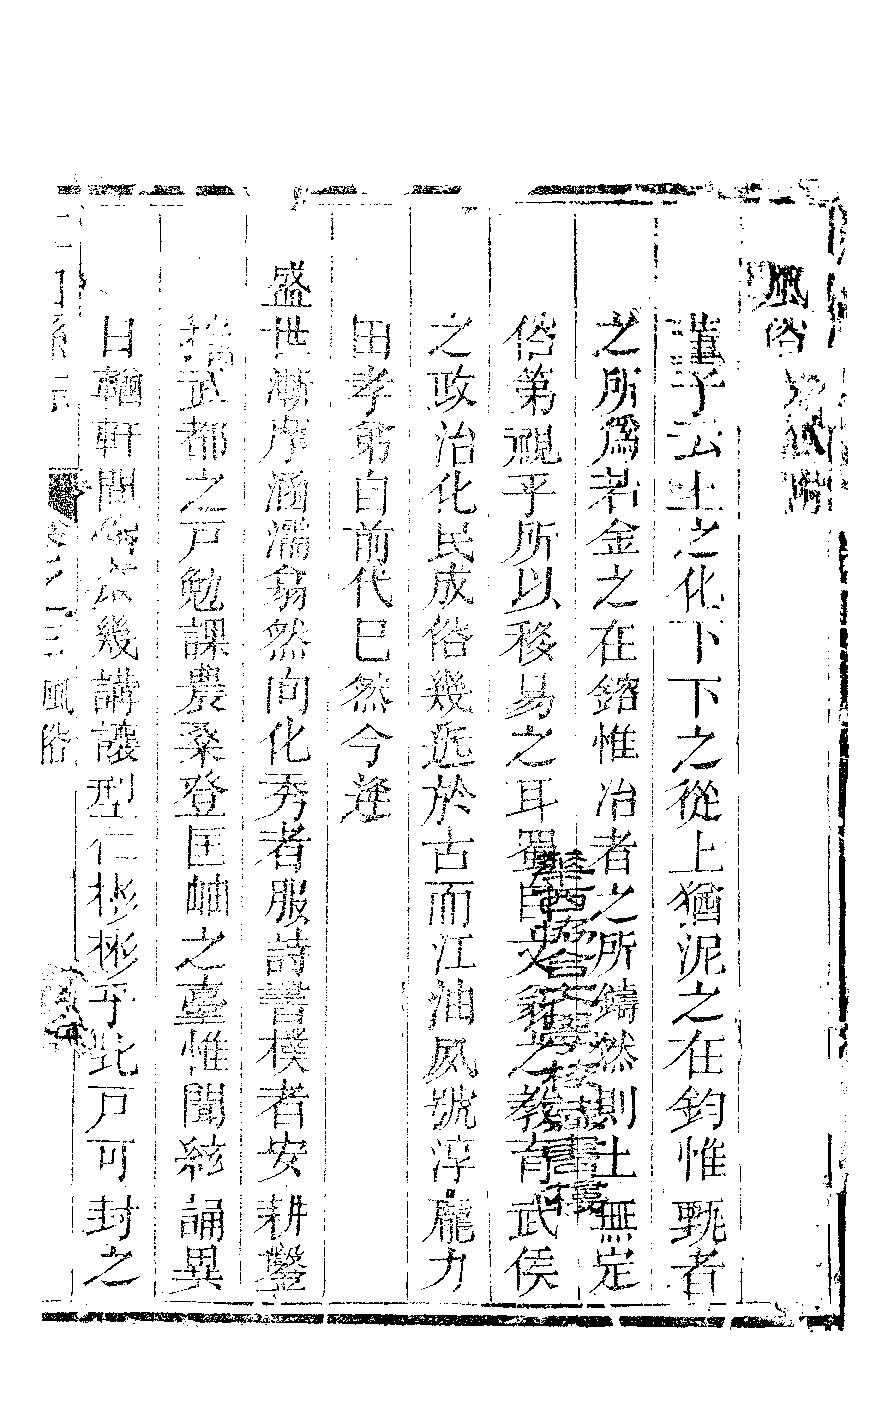 風俗
董子云上之化下下之從上猶泥之在鈞惟甄者
之所爲若金之在鎔惟冶者之所鑄然則土無定
俗第視乎所以移易之耳蜀自文翁之教育武侯
之政治化民成俗幾近於古而江油夙號淳龐力
田孝弟自前代已然今逢
盛世漸摩涵濡翕然向化秀者服詩書樸者安耕鑿
武都之戸勉課農桑登匡岫之臺惟聞絃誦異
日輶軒問俗庶幾講讓型仁彬彬乎比戸可封之
之三 風俗